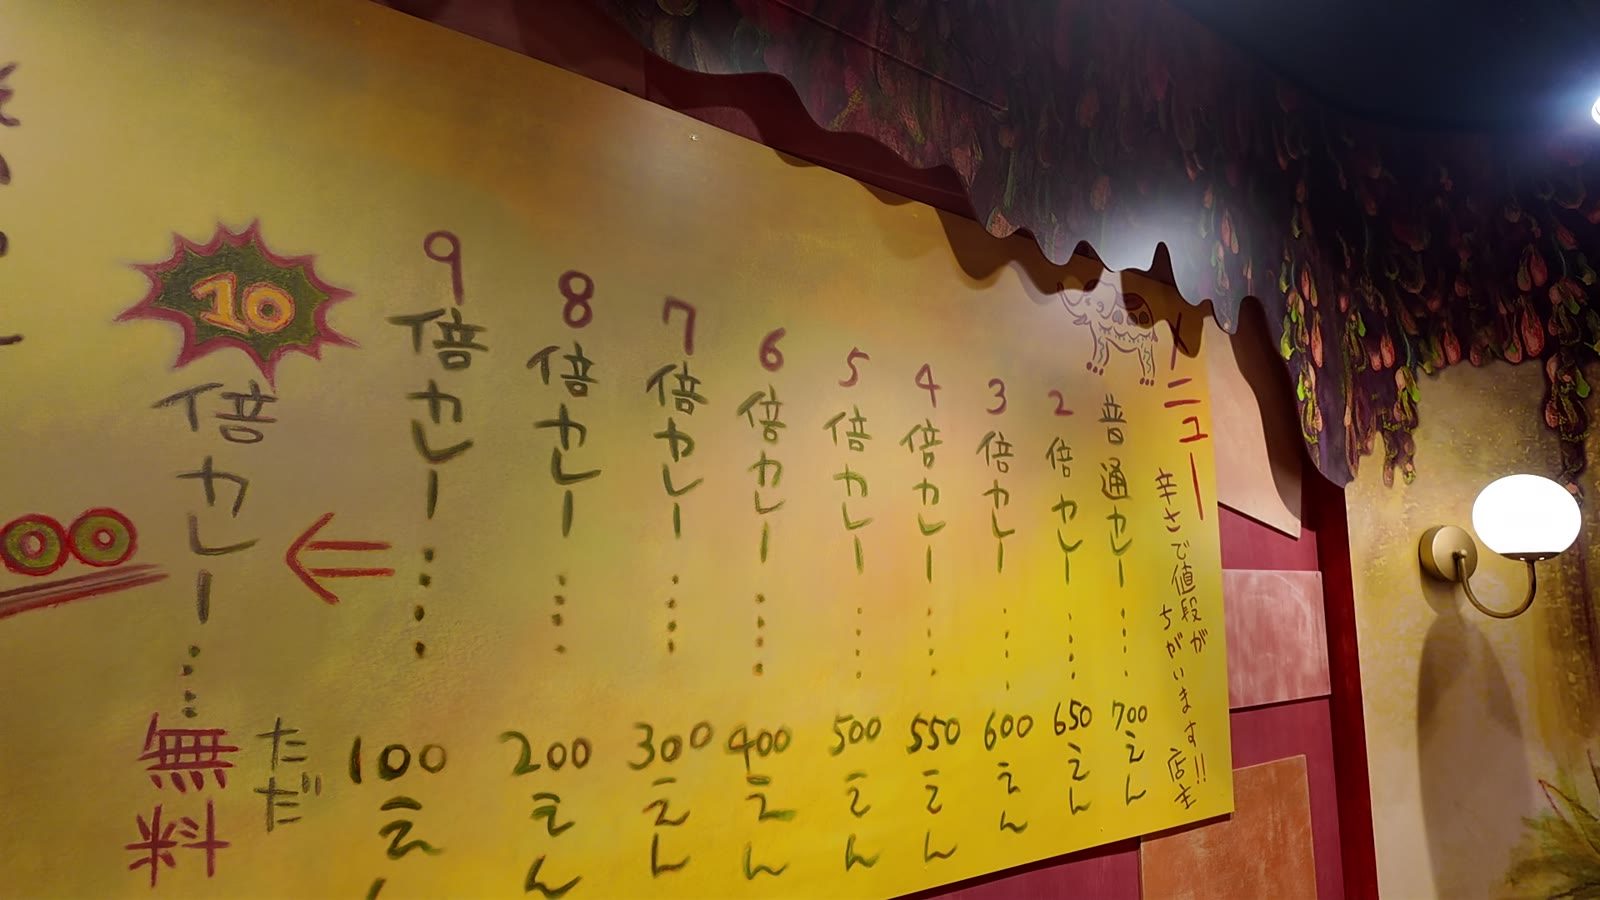 メニュー
辛さで値段が
ちがいます!! 店主
普通カレー……700えん
2倍カレー……650えん
3倍カレー……600えん
4倍カレー……550えん
5倍カレー……500えん
6倍カレー……400えん
7倍カレー……300えん
8倍カレー……200えん
9倍カレー……100えん
←
10倍カレー……無料
ただ